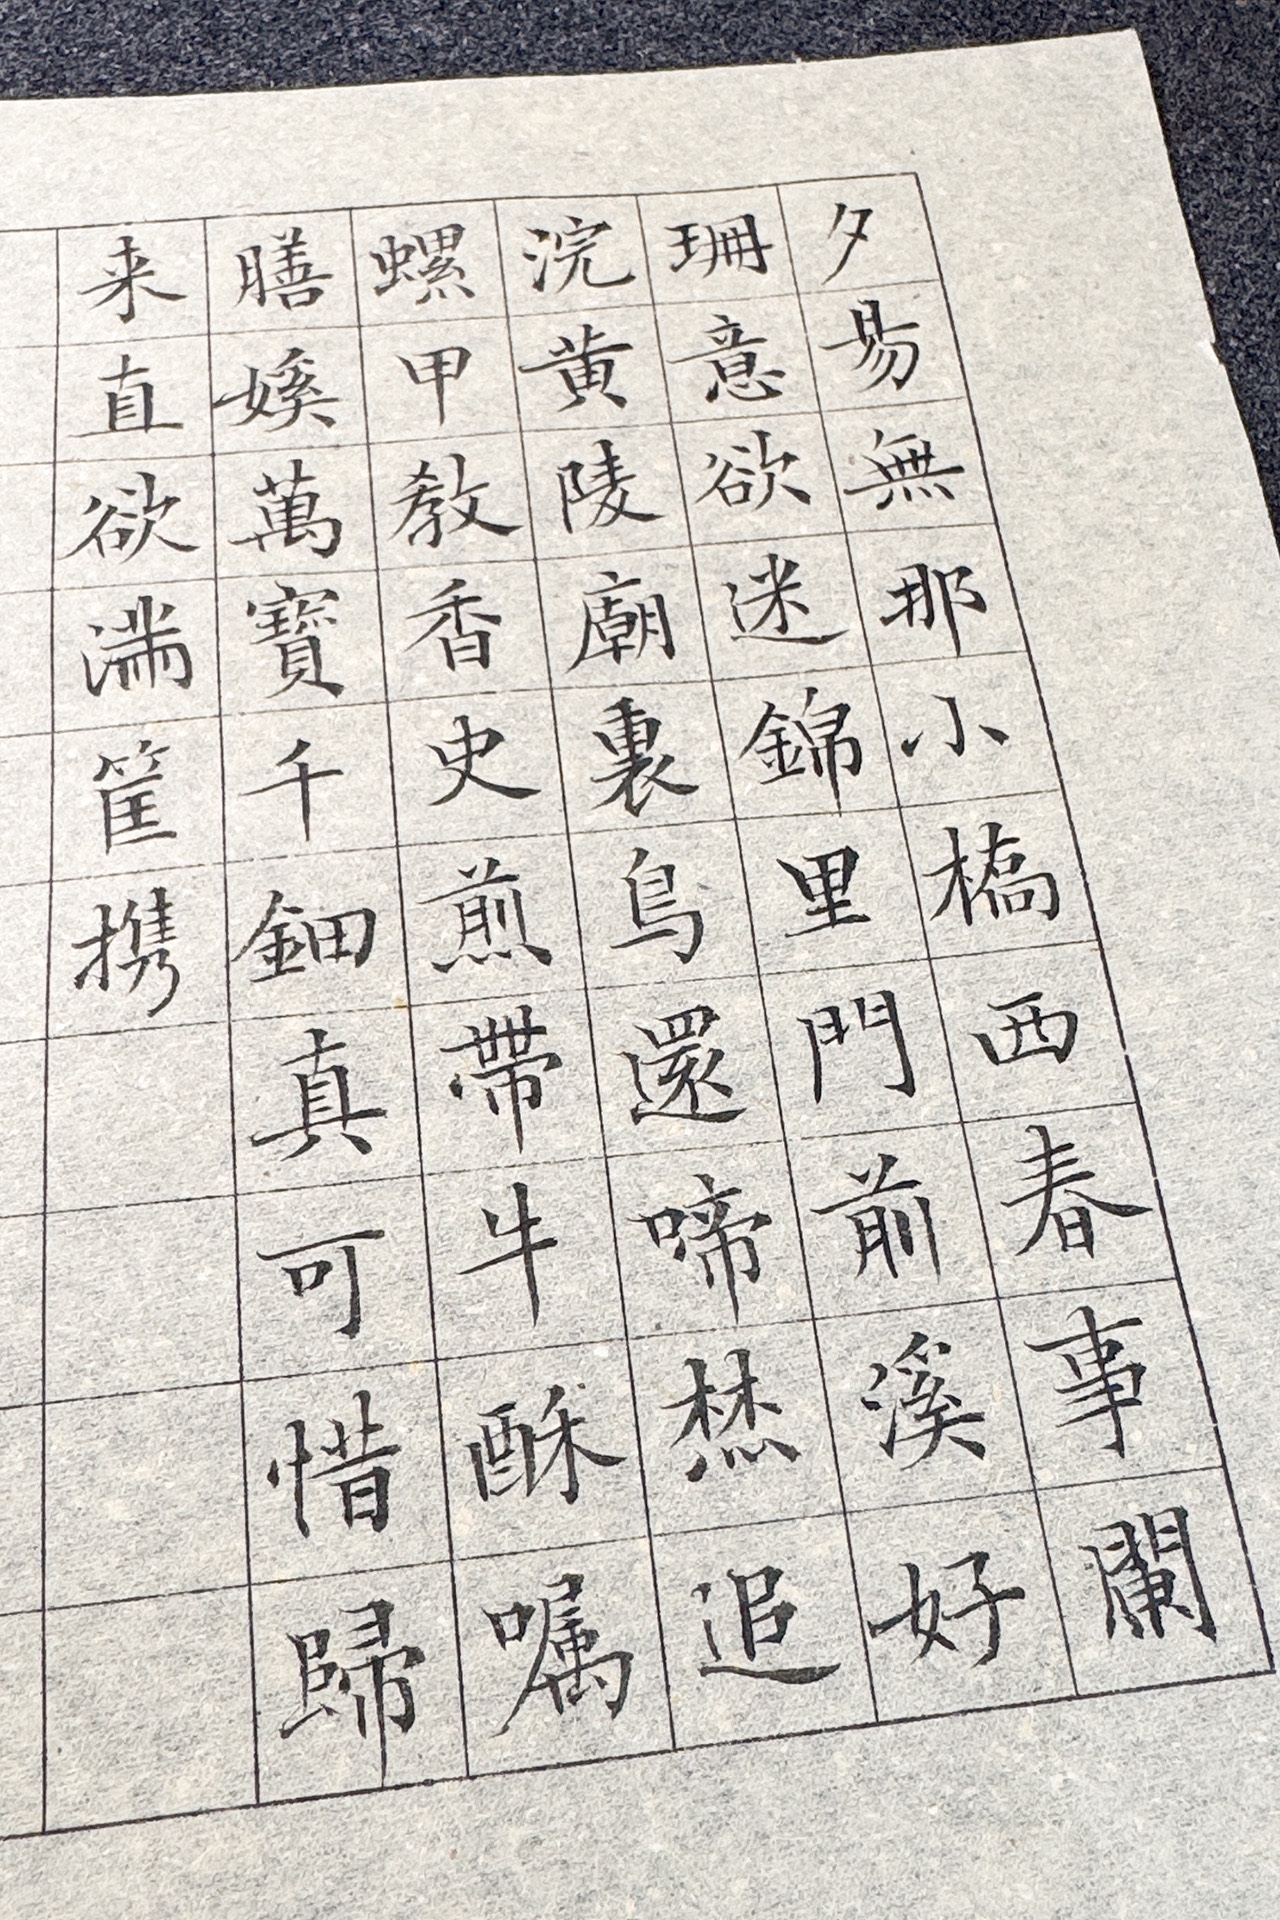 夕昜無那小橋西春事闌
珊意欲迷錦里門前溪好
浣黄陵廟裏鳥還啼焚追
螺甲教香史煎帶牛酥嘱
膳㜎萬寶千鈿真可惜歸
来直欲滿筐携